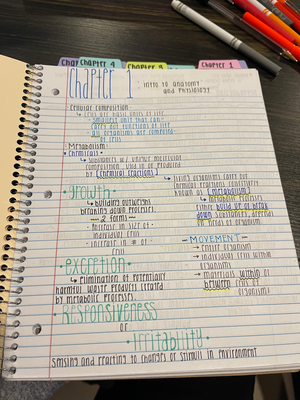 Chapter 4
Chapter 3
Chapter 1
Chapter 1: intro to anatomy
and physiology
Cellular composition -
↳ cells are basic units of life
- smallest unit that can
carry out functions of life
- all organisms are composed
of cells
• Metabolism:
• Chemicals -
↳ substances w/ unique molecular
composition used in or produced
by [chemical reactions]
↳ living organisms carry out
chemical reactions collectively
known as [metabolism]
↳ metabolic processes
either build up or break
down substances, depends
on needs of organism.
• growth •
↳ building outweighs
breaking down processes
- 2 forms -
- increase in size of
individual cells
- increase in # of
cells
- MOVEMENT -
→ entire organism
→ individual cells within
organism
→ materials within or
between cells of
organisms
• excretion •
↳ elimination of potentially
harmful waste products created
by metabolic processes.
• Responsiveness
or
irritability •
sensing and reacting to changes or stimuli in environment